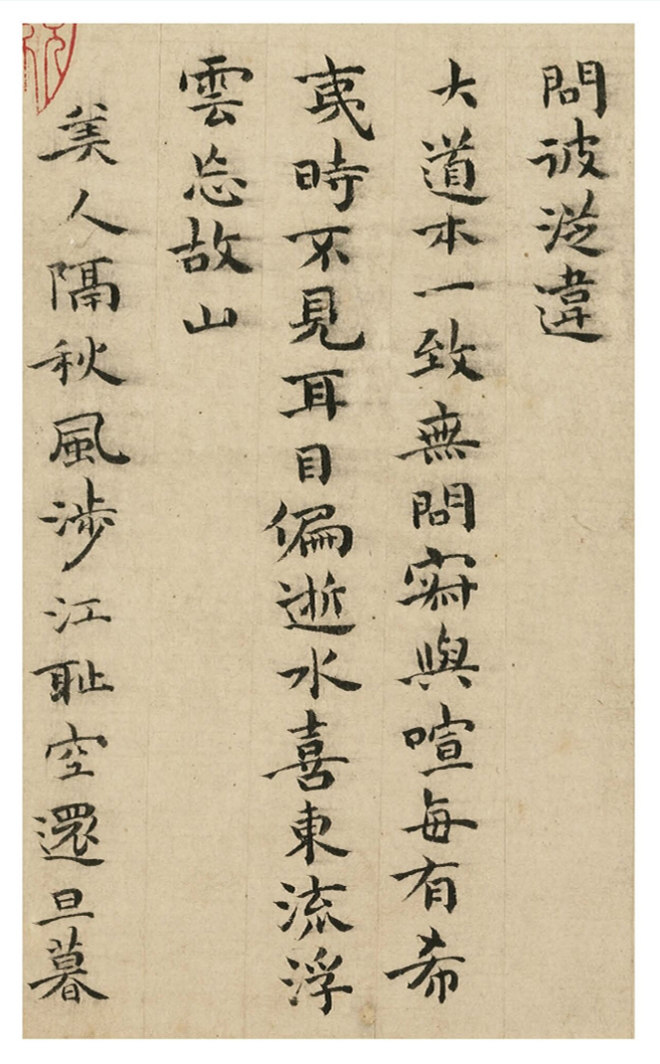 問彼從違
大道本一致無問寂與喧每有希
夷時不見耳目偏逝水喜東流浮
雲忘故山
美人隔秋風涉江恥空還旦暮